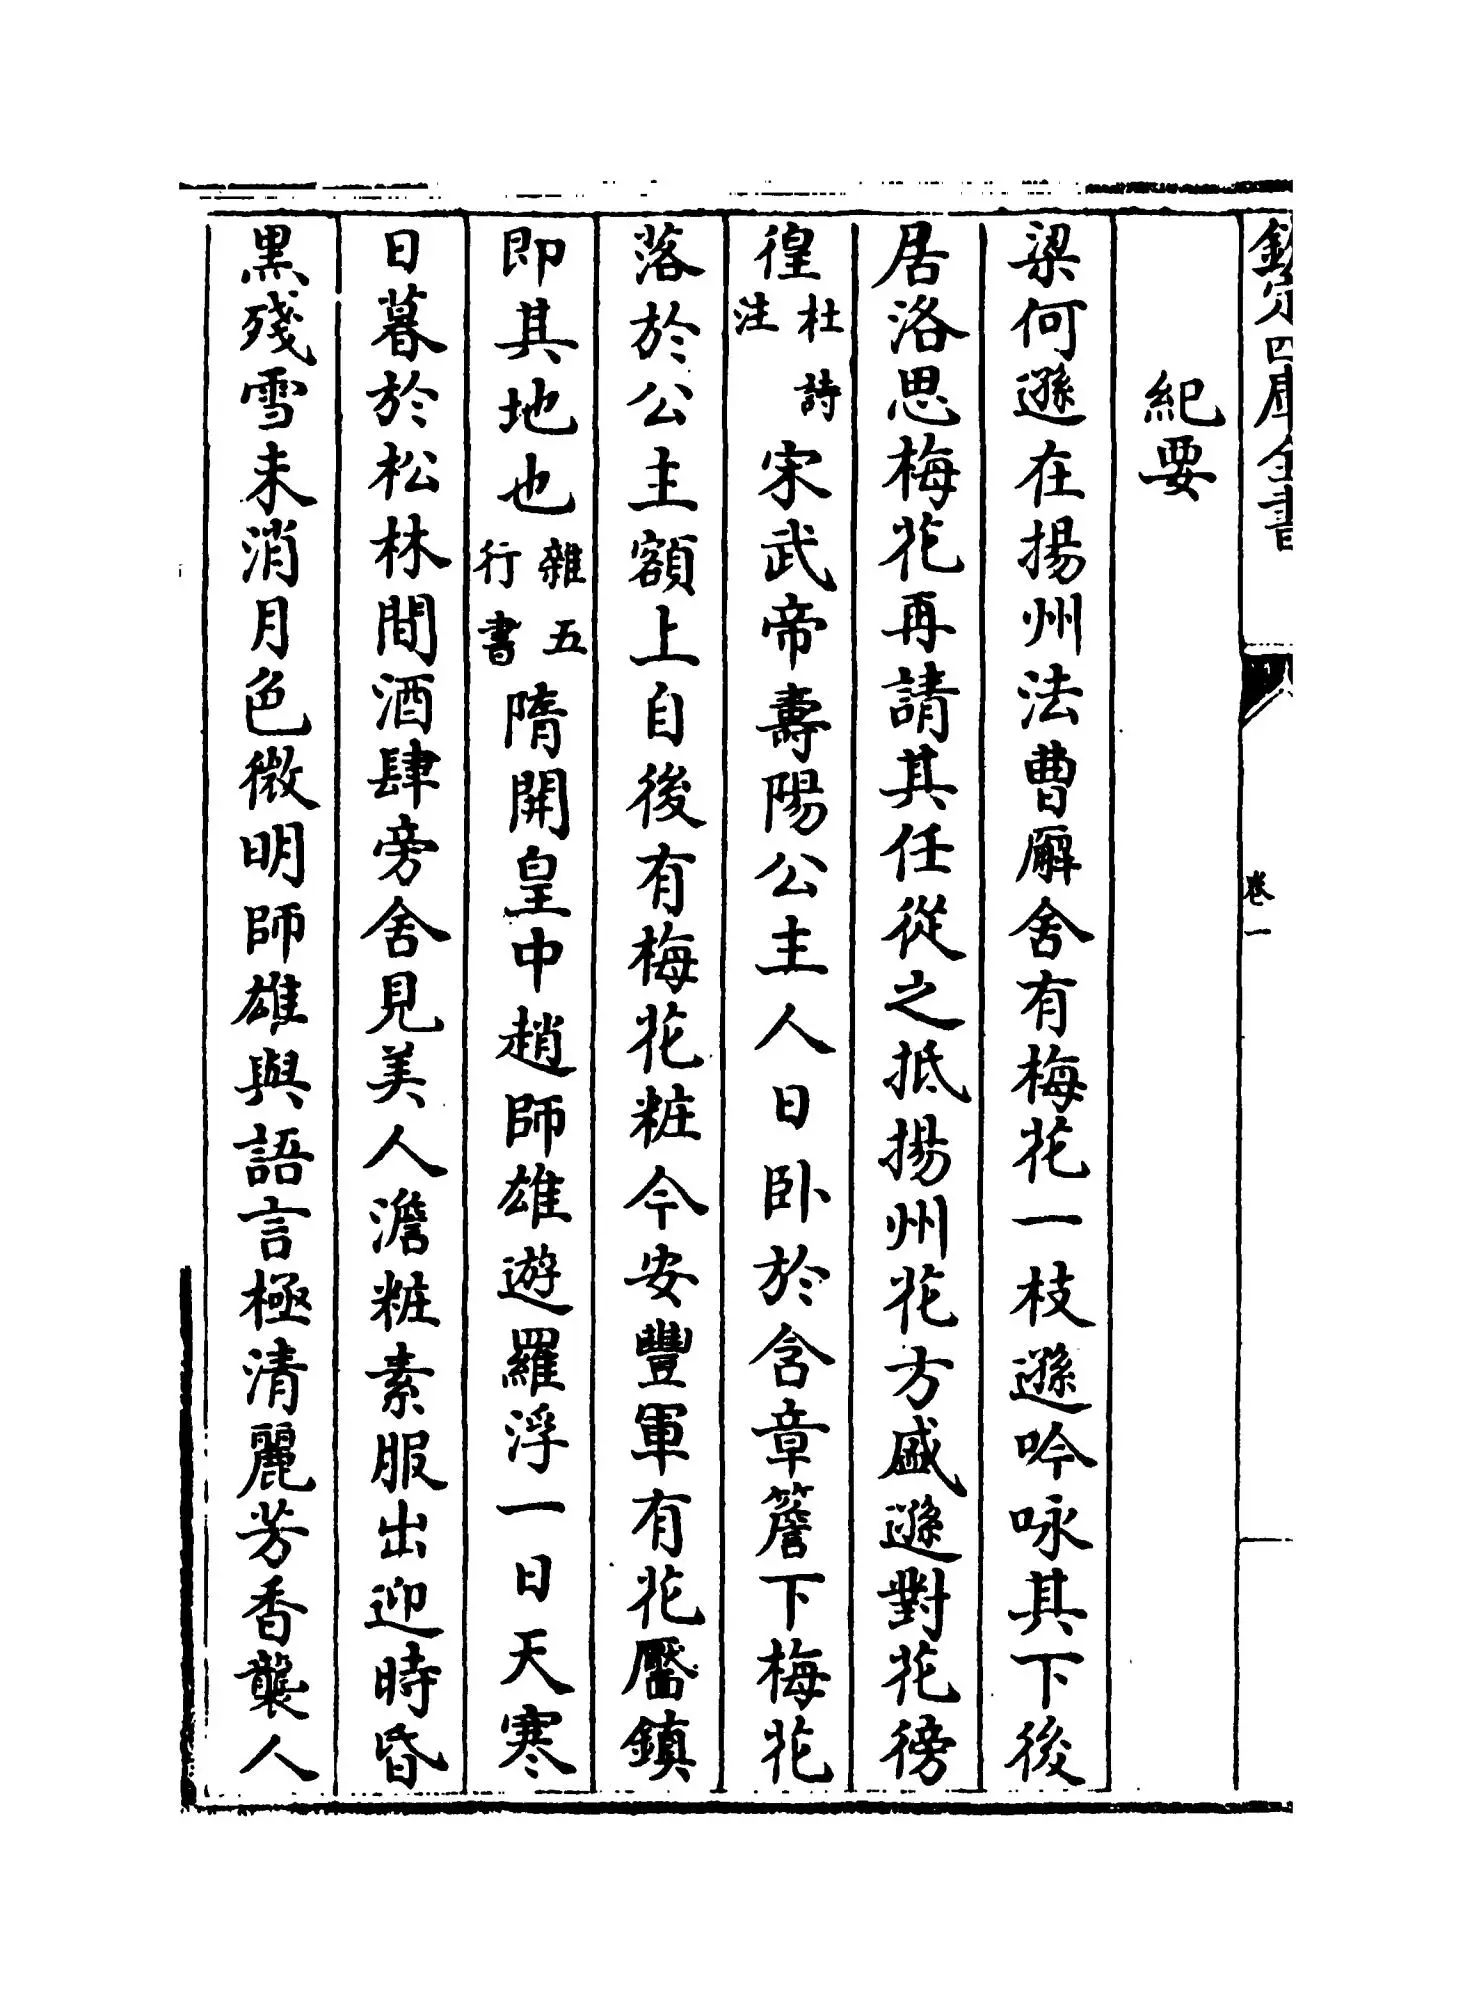 欽定四庫全書
卷一
紀要
梁何遜在揚州法曹廨舍有梅花一枝遜吟咏其下後
居洛思梅花再請其任從之抵揚州花方盛遜對花徬
徨杜詩注宋武帝壽陽公主人日卧於含章簷下梅花
落於公主額上自後有梅花粧今安豐軍有花靨鎮
即其地也雜五行書隋開皇中趙師雄遊羅浮一日天寒
日暮於松林間酒肆旁舍見美人澹粧素服出迎時昏
黒殘雪未消月色微明師雄與語言極清麗芳香襲人